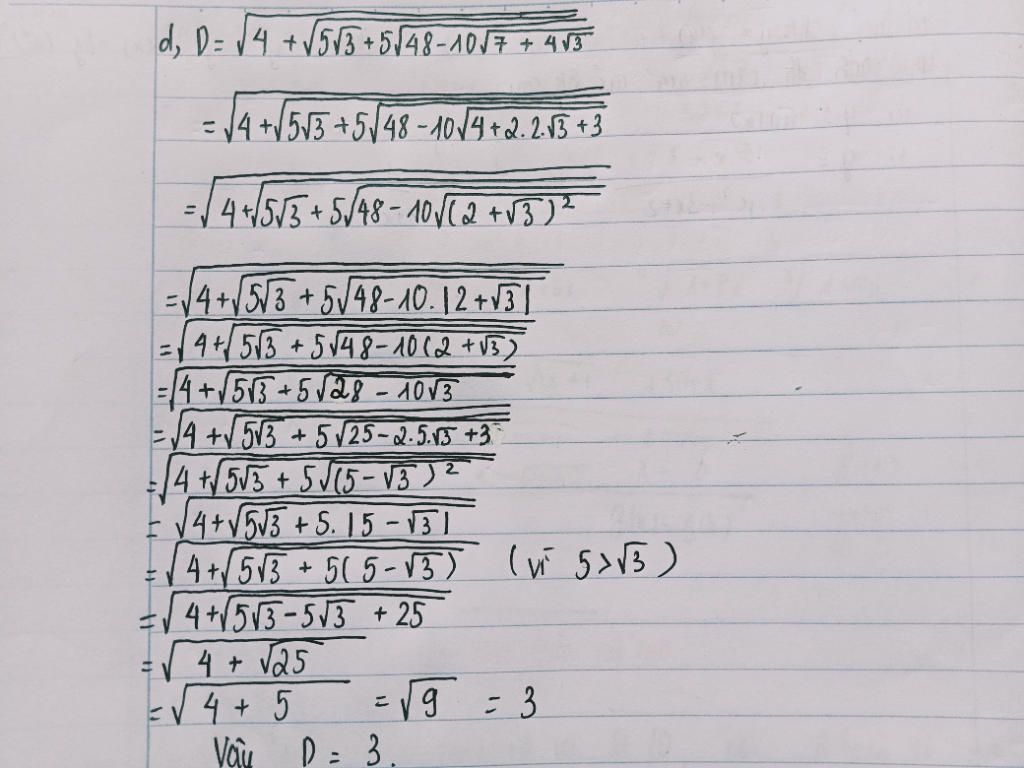 d, D = √(4 + √(5√3 + 5√(48 - 10√(7 + 4√3))))
= √(4 + √(5√3 + 5√(48 - 10√(4 + 2.2.√3 + 3))))
= √(4 + √(5√3 + 5√(48 - 10√((2 + √3)²))))
= √(4 + √(5√3 + 5√(48 - 10.|2 + √3|)))
= √(4 + √(5√3 + 5√(48 - 10(2 + √3))))
= √(4 + √(5√3 + 5√(28 - 10√3)))
= √(4 + √(5√3 + 5√(25 - 2.5.√3 + 3)))
= √(4 + √(5√3 + 5√((5 - √3)²)))
= √(4 + √(5√3 + 5.|5 - √3|))
= √(4 + √(5√3 + 5(5 - √3))) (vì 5 > √3)
= √(4 + √(5√3 - 5√3 + 25))
= √(4 + √25)
= √(4 + 5) = √9 = 3
Vậy D = 3.